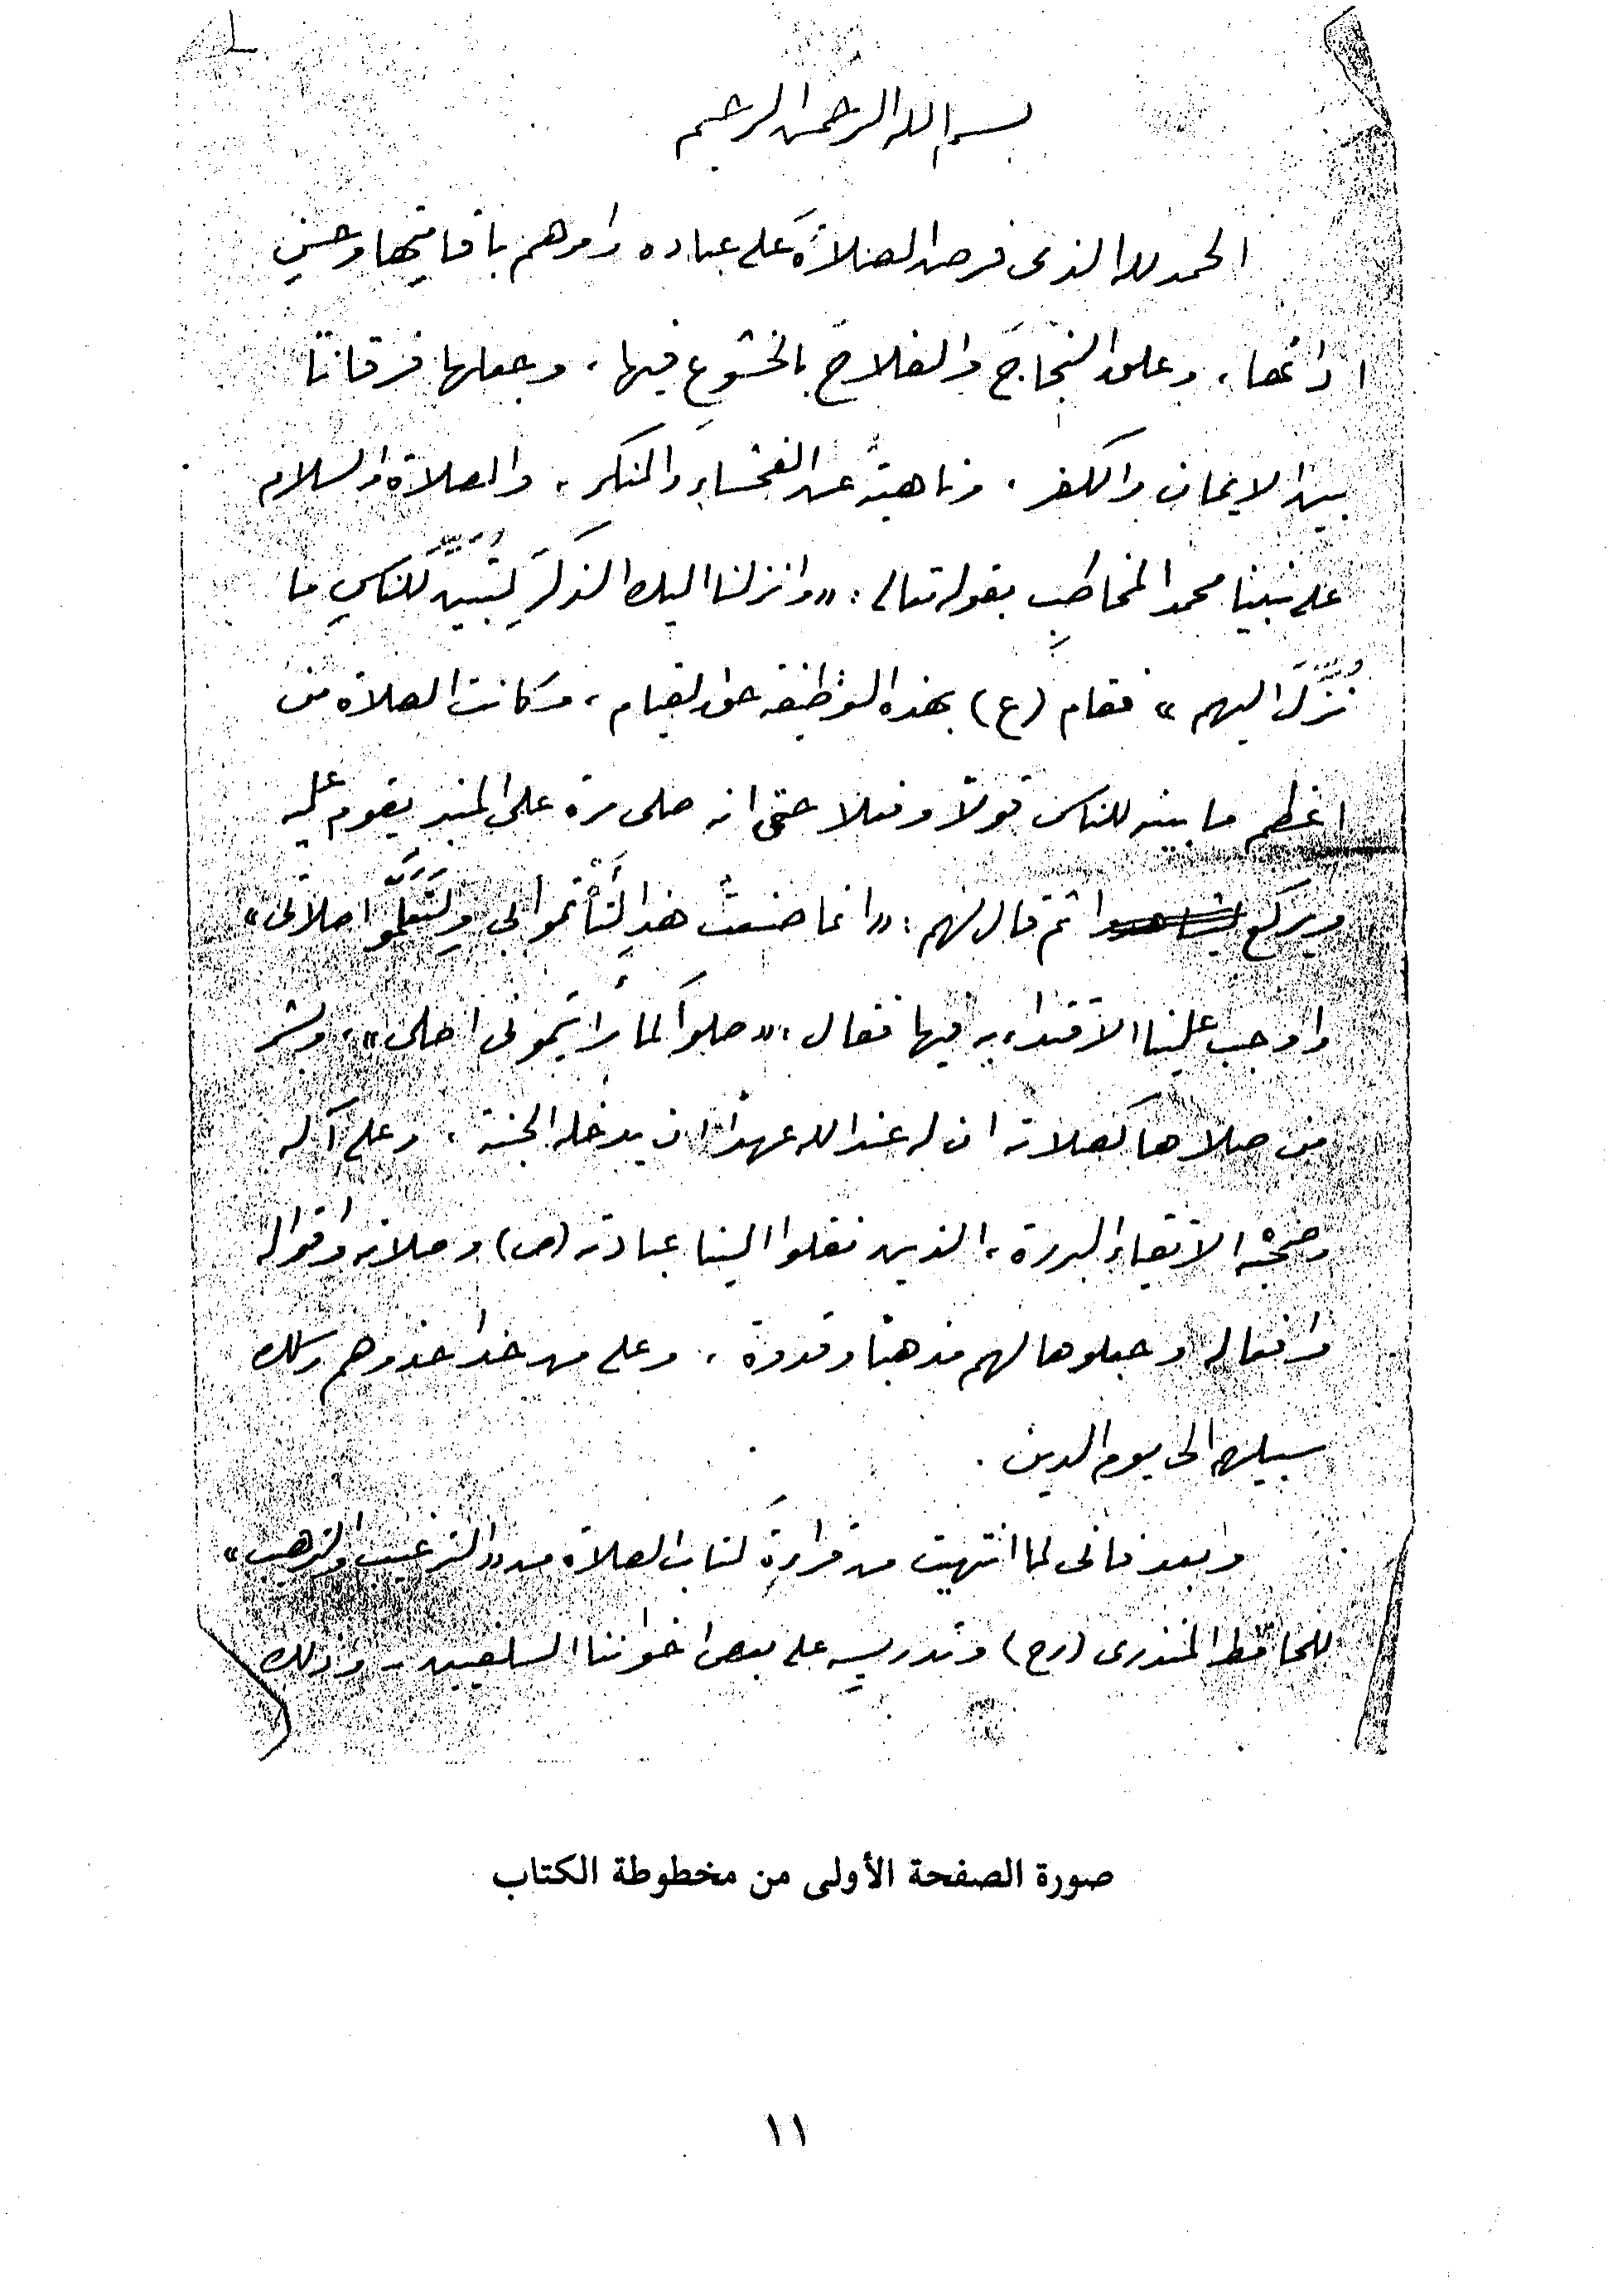 بسم الله الرحمن الرحيم
الحمد لله الذى فرض الصلاةَ على عباده وامرهم باقامتها وحسنِ
ادائها، وعلق النجاحَ والفلاحَ بالخشوعِ فيها، وجعلها فرقانًا
بين الايمان والكفر، وناهيةً عن الفحشاءِ والمنكر، والصلاة والسلام
على نبينا محمد المخاطبِ بقوله تعالى: «وانزلنا اليك الذكرَ لِتُبَيِّنَ للناسِ ما
نُزِّلَ اليهم» فقام (ع) بهذه الوظيفة حق القيام، وكانت الصلاة من
اعظم ما بينه للناس قولًا وفعلا حتى انه صلى مرة على المنبر يقوم عليه
ويركع ثم قال لهم: «انما صنعتُ هذا لِتَأْتموا بى ولِتَعَلَّموا صلاتى»
واوجب علينا الاقتداء به فيها فقال: «صلوا كما رأيتمونى اصلى»، وبشر
من صلاها كصلاته ان له عند الله عهدًا ان يدخله الجنة، وعلى آله
وصحْبه الاتقياء البررة، الذين نقلوا الينا عبادته (ص) وصلاته واقواله
وافعاله وجعلوها لهم مذهبًا وقدوة، وعلى من حذا حذوهم وسلك
سبيلهم الى يوم الدين.
وبعد فانى لما انتهيت من قراءةِ كتاب الصلاة من «الترغيب والترهيب»
للحافظ المنذرى (رح) وتدريسِه على بعض اخواننا السلفيين - وذلك
صورة الصفحة الأولى من مخطوطة الكتاب
١١